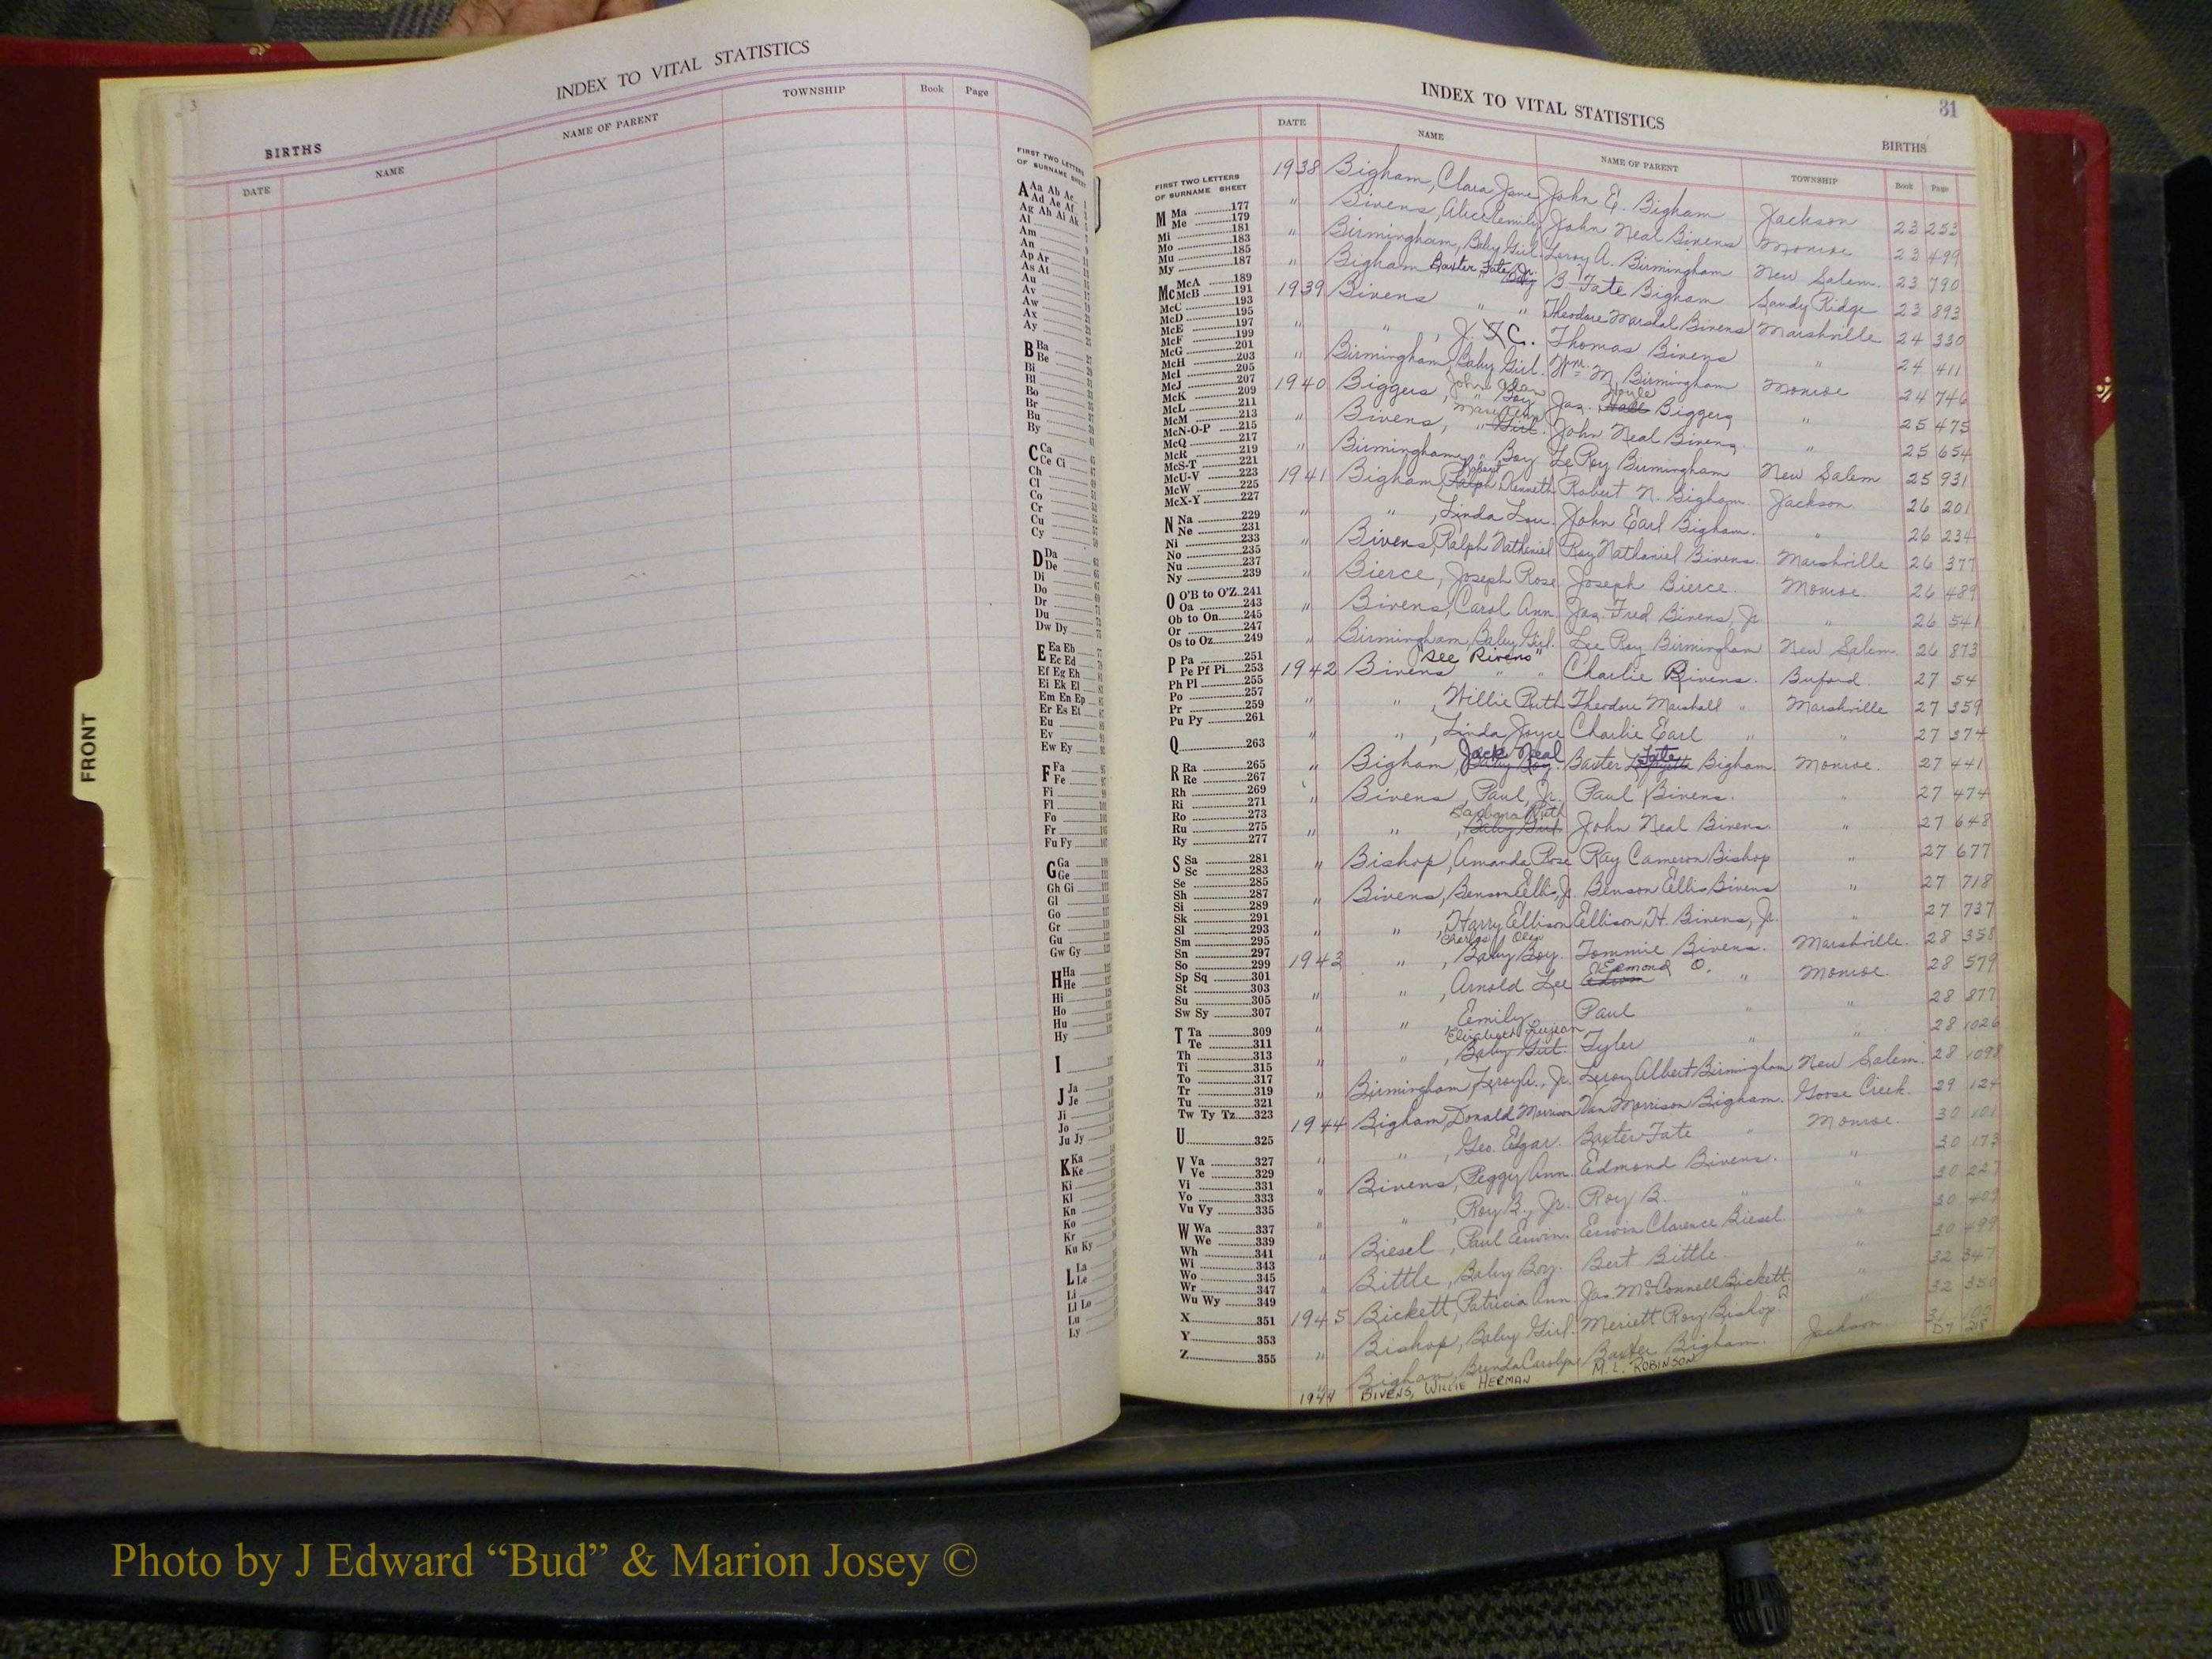 3
INDEX TO VITAL STATISTICS
BIRTHS
DATE
NAME
NAME OF PARENT
TOWNSHIP
Book
Page
FIRST TWO LETTERS
OF SURNAME SHEET
A Aa Ab Ac
Ad Ae Af
Ag Ah Ai Ak
Al
Am
An
Ap Ar
As At
Au
Av
Aw
Ax
Ay
B Ba
Be
Bi
Bl
Bo
Br
Bu
By
C Ca
Ce Ci
Ch
Cl
Co
Cr
Cu
Cy
D Da
De
Di
Do
Dr
Du
Dw Dy
E Ea Eb
Ec Ed
Ef Eg Eh
Ei Ek El
Em En Ep
Er Es Et
Eu
Ev
Ew Ey
F Fa
Fe
Fi
Fl
Fo
Fr
Fu Fy
G Ga
Ge
Gh Gi
Gl
Go
Gr
Gu
Gw Gy
H Ha
He
Hi
Ho
Hu
Hy
I
J Ja
Je
Ji
Jo
Ju Jy
K Ka
Ke
Ki
Kl
Kn
Ko
Kr
Ku Ky
L La
Le
Li
Ll Lo
Lu
Ly
FRONT
INDEX TO VITAL STATISTICS
31
BIRTHS
DATE NAME NAME OF PARENT TOWNSHIP Book Page
FIRST TWO LETTERS
OF SURNAME SHEET
M Ma 177
Me 179
Mi 181
Mo 183
Mu 185
My 187
Mc McA 189
McB 191
McC 193
McD 195
McE 197
McF 199
McG 201
McH 203
McI 205
McJ 207
McK 209
McL 211
McM 213
McN-O-P 215
McQ 217
McR 219
McS-T 221
McU-V 223
McW 225
McX-Y 227
N Na 229
Ne 231
Ni 233
No 235
Nu 237
Ny 239
O O'B to O'Z 241
Oa 243
Ob to On 245
Or 247
Os to Oz 249
P Pa 251
Pe Pf Pi 253
Ph Pl 255
Po 257
Pr 259
Pu Py 261
Q 263
R Ra 265
Re 267
Rh 269
Ri 271
Ro 273
Ru 275
Ry 277
S Sa 281
Sc 283
Se 285
Sh 287
Si 289
Sk 291
Sl 293
Sm 295
Sn 297
So 299
Sp Sq 301
St 303
Su 305
Sw Sy 307
T Ta 309
Te 311
Th 313
Ti 315
To 317
Tr 319
Tu 321
Tw Ty Tz 323
U 325
V Va 327
Ve 329
Vi 331
Vo 333
Vu Vy 335
W Wa 337
We 339
Wh 341
Wi 343
Wo 345
Wr 347
Wu Wy 349
X 351
Y 353
Z 355
1938 Bigham, Clara Jane John E. Bigham Jackson 23 253
" Bivens, Alice Emily John Neal Bivens Monroe 23 499
" Birmingham, Baby Girl Leroy A. Birmingham New Salem 23 790
" Bigham Baxter Tate, Jr. Boy B-Tate Bigham Sandy Ridge 23 893
1939 Bivens " " Theodore Marshal Bivens Marshville 24 330
" " , J. C. Thomas Bivens " 24 411
" Birmingham, Baby Girl. Wm. M. Birmingham Monroe 24 746
1940 Biggers, John " Boy Jas. Hoyle Biggers " 25 475
" Bivens, Mary Ann " Girl John Neal Bivens " 25 654
" Birmingham, " Boy Le Roy Birmingham New Salem 25 931
1941 Bigham, Robert Ralph Kenneth Robert N. Bigham Jackson 26 201
" " , Linda Lou. John Earl Bigham. " 26 234
" Bivens, Ralph Nathaniel Roy Nathaniel Bivens. Marshville 26 377
" Bierce, Joseph Rose Joseph Bierce. Monroe. 26 489
" Bivens, Carol Ann. Jas. Fred Bivens, Jr. " 26 541
" Birmingham, Baby Girl. Lee Roy Birmingham New Salem. 26 873
"See Rivens"
1942 Bivens " " Charlie Rivens. Buford. 27 54
" " , Willie Ruth Theodore Marshall " Marshville 27 359
" " , Linda Joyce Charlie Earl " " 27 374
" Bigham, Jack Neal Baby Boy. Baxter Tate Bigham. Monroe. 27 441
" Bivens, Paul, Jr. Paul Bivens. " 27 474
" " , Barbara Ruth Baby Girl John Neal Bivens " 27 648
" Bishop, Amanda Rose Ray Cameron Bishop " 27 677
" Bivens, Benson Ellis, Jr. Benson Ellis Bivens " 27 718
" " , Harry Ellison Ellison H. Bivens, Jr. " 27 737
1943 " , Charles Olen Baby Boy. Tommie Bivens. Marshville. 28 358
" " , Arnold Lee Edmond O. " Monroe. 28 579
" " , Emily Paul " " 28 877
" " , Elizabeth Baby Girl. Tyler " " 28 1026
" Birmingham, Leroy A., Jr. Leroy Albert Birmingham New Salem. 28 1098
1944 Bigham, Donald Morrison Van Morrison Bigham. Goose Creek. 29 124
" " , Geo. Edgar. Baxter Tate " Monroe. 30 101
" Bivens, Peggy Ann. Edmond Bivens. " 30 173
" " , Roy B., Jr. Roy B. " " 30 227
" Biesel, Paul Erwin. Erwin Clarence Biesel. " 30 407
" Bittle, Baby Boy. Bert Bittle. " 30 499
1945 Bickett, Patricia Ann. Jas. McConnell Bickett. " 32 347
" Bishop, Baby Girl. Meriett Roy Bishop. " 32 350
" Bigham, Brenda Carolyn Baxter Bigham. Jackson.
1944 BIVENS, WILLIE HERMAN M. L. ROBINSON D7 218
Photo by J Edward “Bud” & Marion Josey ©